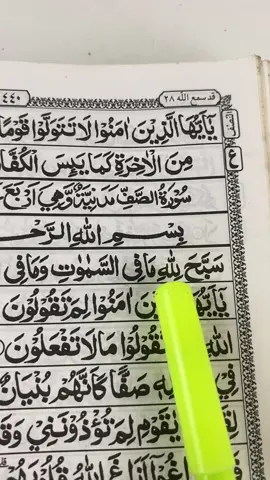 قد سمع الله ٢٨
٤٤٠
يٰۤاَيُّهَا الَّذِيۡنَ اٰمَنُوۡا لَا تَتَوَلَّوۡا قَوۡمًا
مِنَ الۡاٰخِرَةِ كَمَا يَئِسَ الۡكُفَّا
سُوۡرَةُ الصَّفِّ مَدَنِيَّةٌ وَّهِيَ اَرۡبَعَ
بِسۡمِ اللّٰهِ الرَّحۡ
سَبَّحَ لِلّٰهِ مَا فِي السَّمٰوٰتِ وَمَا فِي
يٰۤاَيُّهَا اٰمَنُوۡا لِمَ تَقُوۡلُوۡنَ
اللّٰهِ تَقُوۡلُوۡا مَا لَا تَفۡعَلُوۡنَ
فِيۡ صَفًّا كَاَنَّهُمۡ بُنۡيَانٌ
يٰقَوۡمِ لِمَ تُؤۡذُوۡنَنِيۡ وَقَ
اَزَاغَ اللّٰهُ قُلُوۡبَهُمۡ